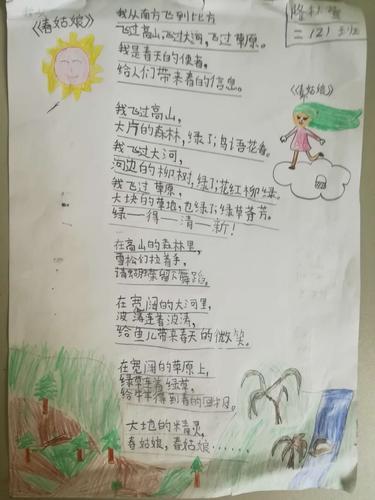 《春姑娘》
二(2)班
我从南方飞到北方
飞过高山,飞过大河,飞过草原。
我是春天的使者,
给人们带来春的信息。
《春姑娘》
我飞过高山,
大片的森林,绿了,鸟语花香。
我飞过大河,
河边的柳树,绿了,花红柳绿。
我飞过草原,
大块的草地,也绿了,绿草菁芳。
绿一得一清一新!
在高山的森林里,
雪松们拉着手,
请蝴蝶留下舞蹈。
在宽阔的大河里,
波涛连着波涛,
给鱼儿带来春天的微笑。
在宽阔的草原上,
绿草连着绿草,
给牛羊得到春的回报。
大地的精灵,
春姑娘,春姑娘……